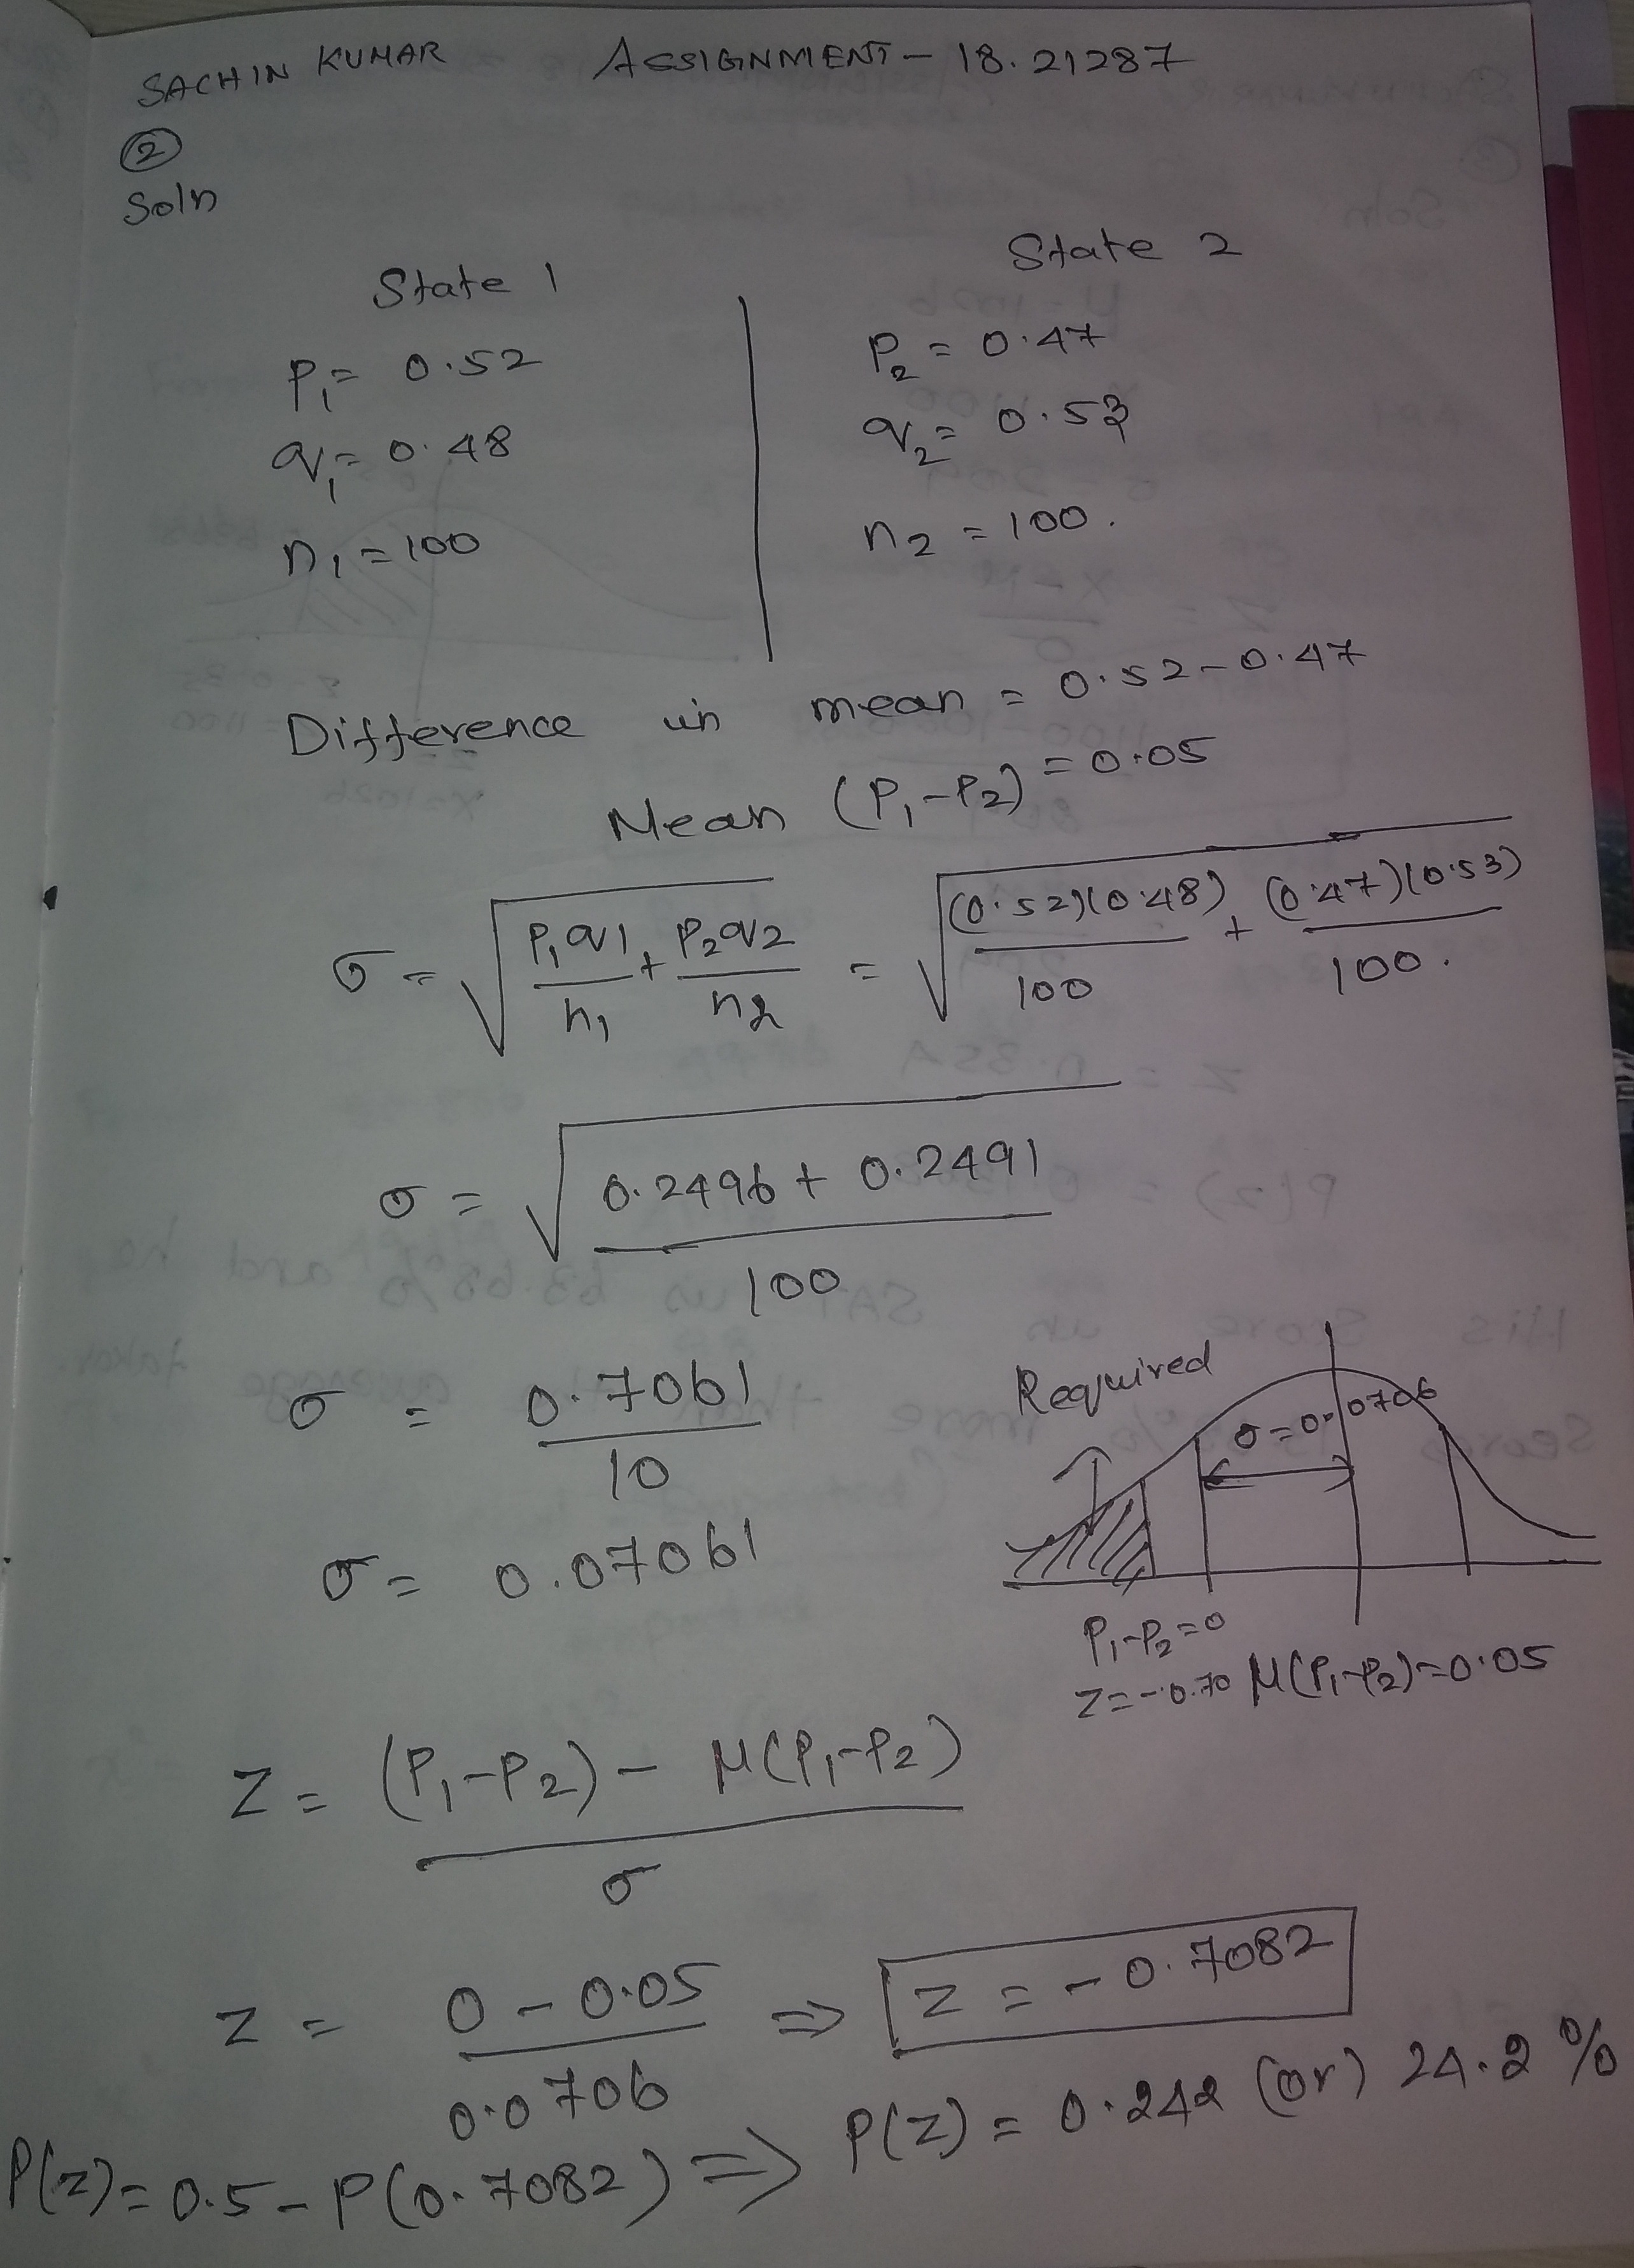 SACHIN KUMAR ASSIGNMENT - 18.21287
②
Soln
State 1 State 2
P₁ = 0.52 P₂ = 0.47
q₁ = 0.48 q₂ = 0.53
n₁ = 100 n₂ = 100.
Difference in mean = 0.52 - 0.47
Mean (P₁-P₂) = 0.05
σ = √(P₁q₁/n₁ + P₂q₂/n₂) = √((0.52)(0.48)/100 + (0.47)(0.53)/100.)
σ = √((0.2496 + 0.2491)/100)
σ = 0.7061/10
Required
σ = 0.0706
σ = 0.07061
P₁-P₂ = 0
Z = -0.70 μ(P₁-P₂) = 0.05
Z = ((P₁-P₂) - μ(P₁-P₂))/σ
Z = (0 - 0.05)/0.0706 ⇒ Z = -0.7082
P(Z) = 0.5 - P(0.7082) ⇒ P(Z) = 0.242 (or) 24.2 %